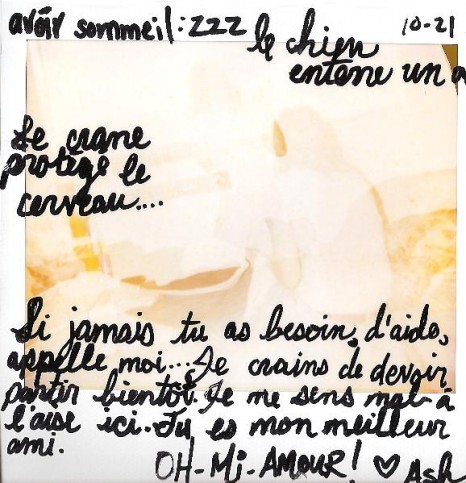 avoir sommeil: ZZZ
10-21
le chien
entane un
Le crane
protège le
cerveau....
Si jamais tu as besoin, d'aide,
appelle, moi... Je crains de devoir
partir bientôt. Je me sens mal à
l'aise ici. Tu es mon meilleur
ami.
OH-Mi-AMOUR! ♡ Ash